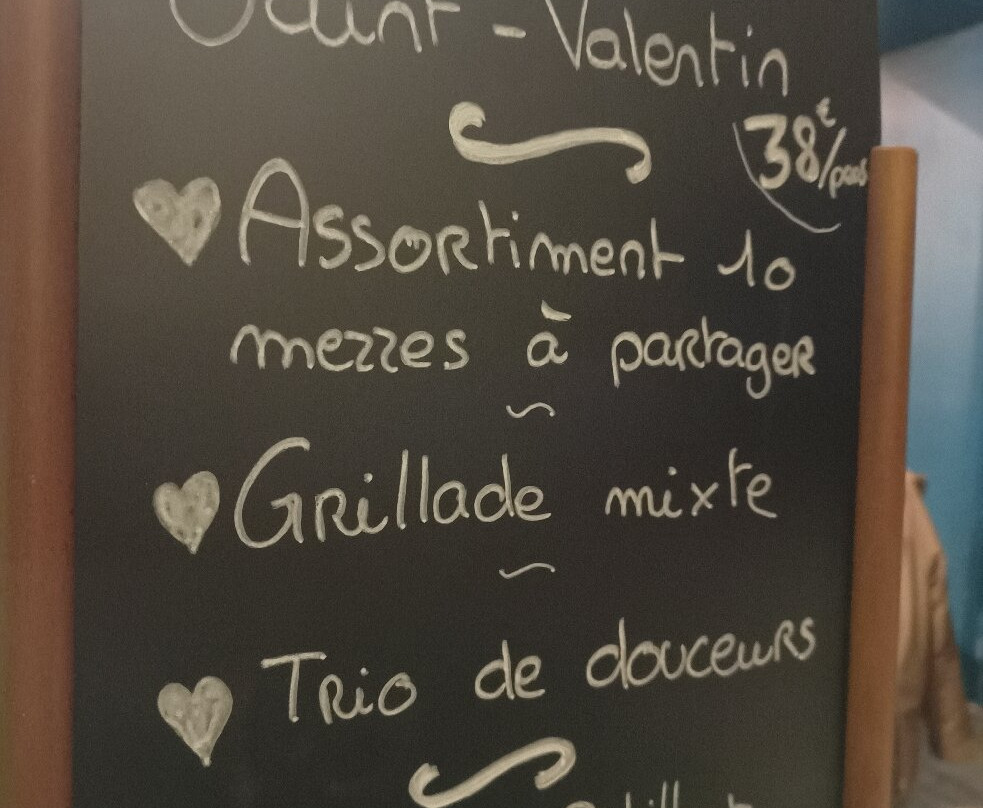 Saint - Valentin
38€/pers
Assortiment 10
mezzes à partager
~
Grillade mixte
~
Trio de douceurs